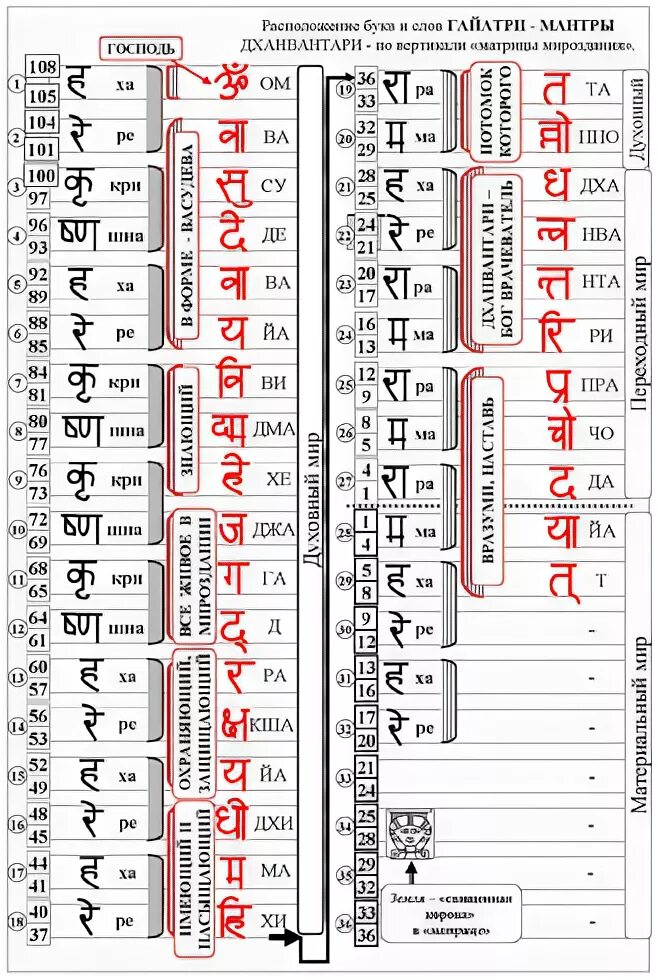 Расположение букв и слов ГАЙАТРИ - МАНТРЫ
ДХАНВАНТАРИ - по вертикали «матрицы мироздания».
ГОСПОДЬ
1 108 105 ह ха ॐ ОМ
2 104 101 रे ре वा ВА
3 100 97 कृ кри सु СУ
4 96 93 ष्ण шна दे ДЕ
5 92 89 ह ха वा ВА
6 88 85 रे ре य ЙА
В ФОРМЕ - ВАСУДЕВА
7 84 81 कृ кри वि ВИ
8 80 77 ष्ण шна द्मा ДМА
9 76 73 कृ кри हे ХЕ
ЗНАЮЩИЙ
10 72 69 ष्ण шна ज ДЖА
11 68 65 कृ кри ग ГА
12 64 61 ष्ण шна द् Д
ВСЕ ЖИВОЕ В
МИРОЗДАНИИ
13 60 57 ह ха र РА
14 56 53 रे ре क्ष КША
15 52 49 ह ха य ЙА
ОХРАНЯЮЩИЙ,
ЗАЩИЩАЮЩИЙ
16 48 45 रे ре धी ДХИ
17 44 41 ह ха म МА
18 40 37 रे ре हि ХИ
ИМЕЮЩИЙ И
НАСЫЩАЮЩИЙ
Духовный мир
19 36 33 रा ра त ТА
20 32 29 म ма ННО
ПОТОМОК
КОТОРОГО
Духовный
21 28 25 ह ха ध ДХА
22 24 21 रे ре न्व НВА
23 20 17 रा ра न्त НТА
24 16 13 म ма रि РИ
ДХАНВАНТАРИ –
БОГ ВРАЧЕВАТЕЛЬ
25 12 9 रा ра प्र ПРА
26 8 5 म ма चो ЧО
27 4 1 रा ра द ДА
Переходный мир
28 1 4 म ма या ЙА
29 5 8 ह ха त् Т
ВРАЗУМИ, НАСТАВЬ
30 9 12 रे ре -
31 13 16 ह ха -
32 17 20 रे ре -
33 21 24 -
34 25 28 -
35 29 32 -
36 33 36 -
Материальный мир
Земля – «священная
корова»
в «матрице»